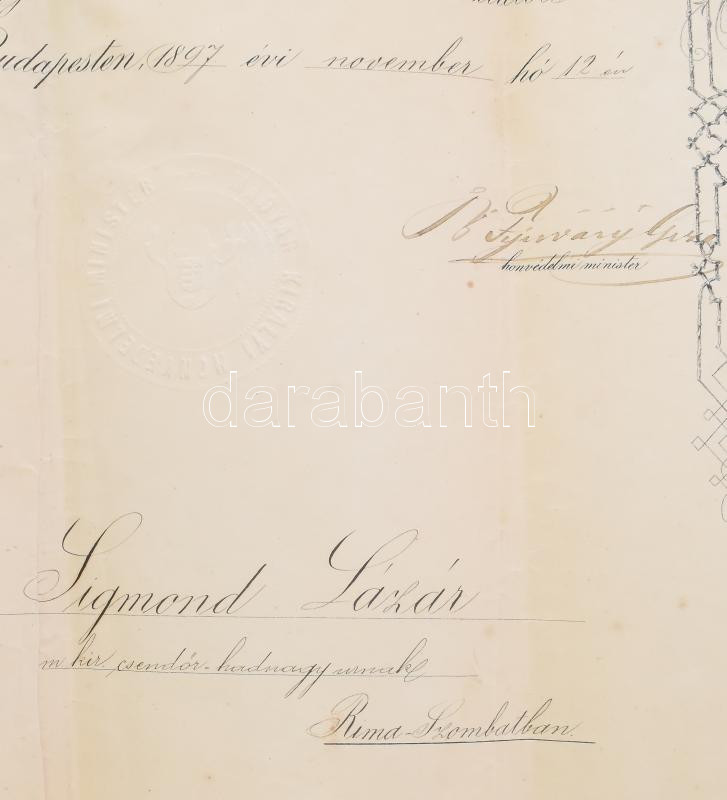 Budapesten, 1897 évi november hó 12 én
MAGYAR KIRÁLYI HONVÉDELMI MINISTER
Fejérváry
honvédelmi minister
darabanth
Sigmond Lázár
m kir csendőr-hadnagy urnak
Rima-Szombatban.